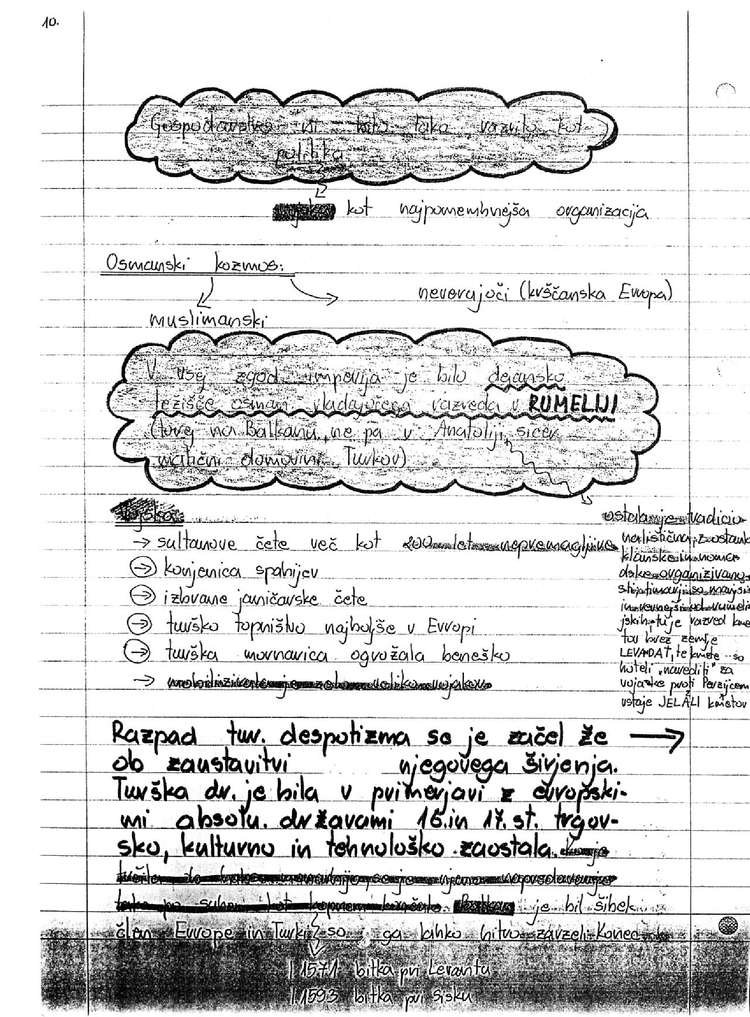 10.
Gospodarstvo ni bilo tako važno kot
politika
kot najpomembnejša organizacija
Osmanski kozmos:
neverujoči (krščanska Evropa)
muslimanski
V vsej zgod. imperija je bilo dejansko
težišče osman. vladajočega razreda v RUMELIJI
(torej na Balkanu, ne pa v Anatoliji, sicer
matični domovini Turkov)
Vojska:
→ sultanove čete več kot 200 let nepremagljive
→ konjenica spahijev
→ izbrane janičarske čete
→ turško topništvo najboljše v Evropi
→ turška mornarica ogrožala beneško
→
ostala je tradicio-
nalistična, zaostank
klanske in nomad
dske
razred kme
tov brez zemlje
LEVANDAT, te kmete so
hoteli "narediti" za
vojake proti Perzijcem
vstaje JELALI kmetov
Razpad tur. despotizma se je začel že →
ob zaustavitvi njegovega širjenja.
Turška dr. je bila v primerjavi z evropski-
mi absolu. državami 16. in 17. st. trgov-
sko, kulturno in tehnološko zaostala.
je bil šibek
člen Evrope in Turki so ga lahko hitro zavzeli. Konec
l. 1571 bitka pri Levantu
l. 1593 bitka pri Sisku